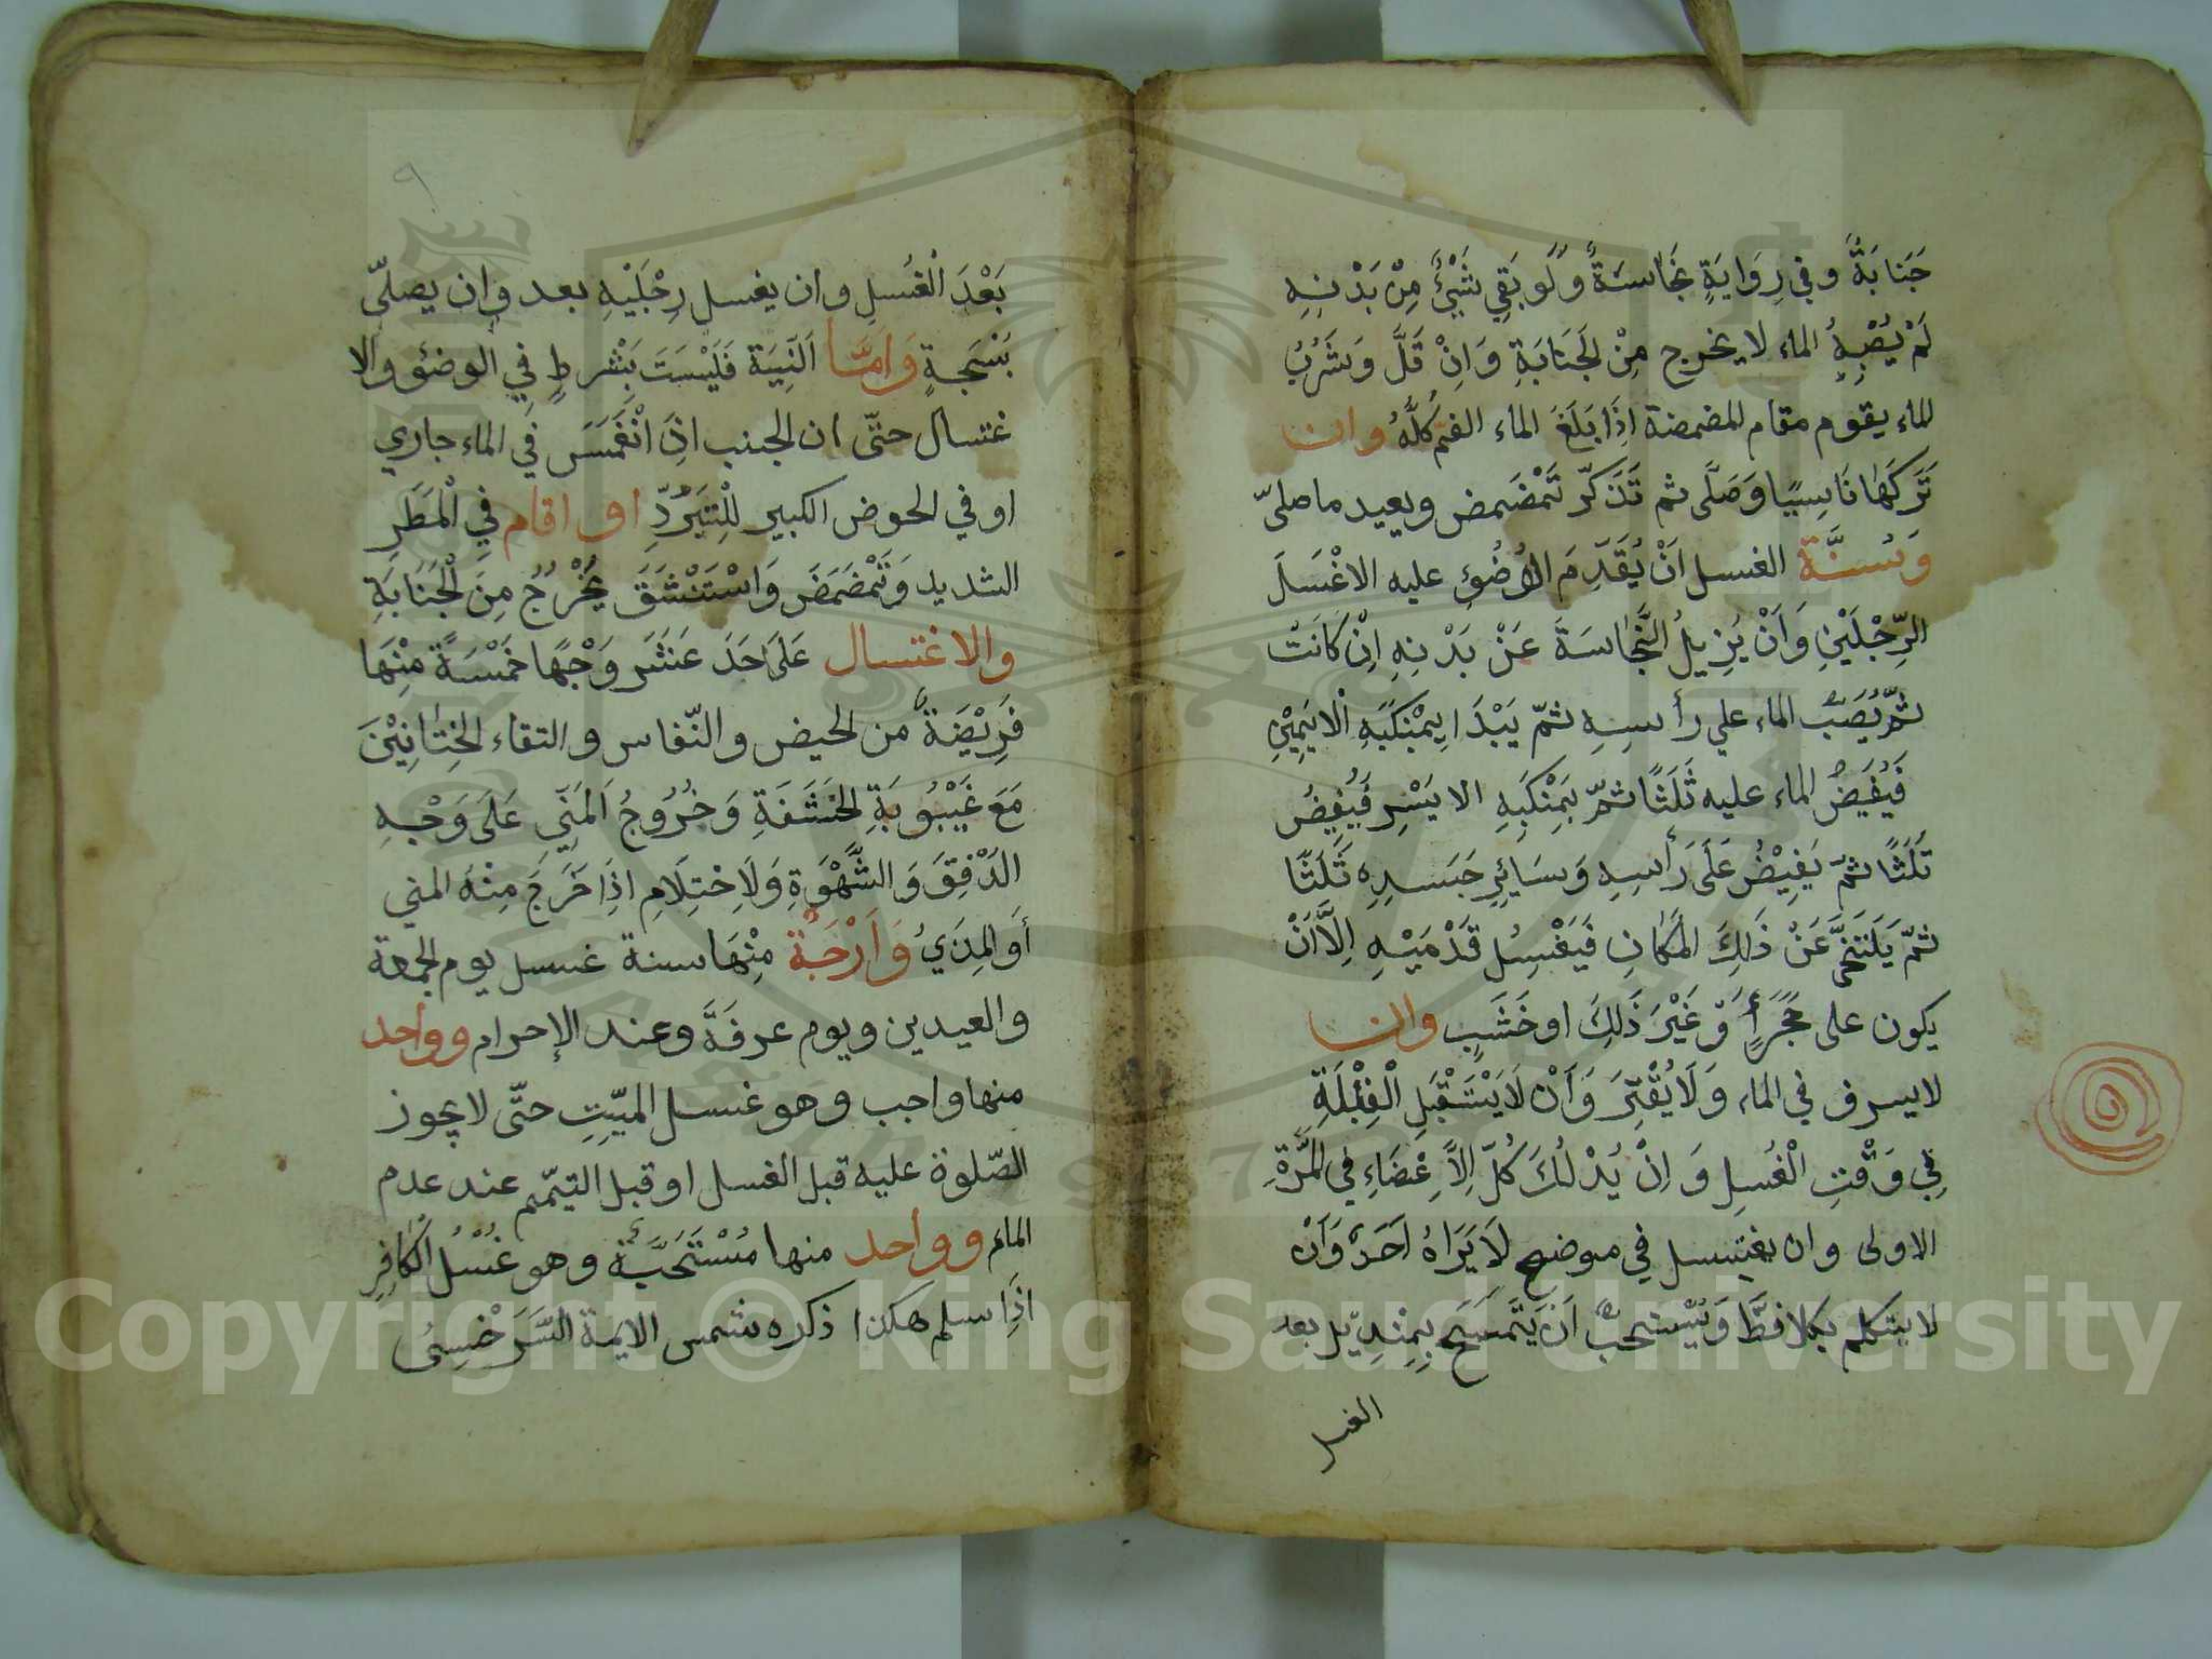 جَنَابَةٌ وفي رِوَايَةٍ نَجَاسَةٌ وَلَو بَقِي شَيْئٌ مِنْ بَدْنِهِ
لَمْ يُصْبِهِ الماء لا يخرج مِنْ لجَنَابَةِ وَاِنْ قَلَّ وَشَرُبُ
الماء يقوم مقام المضمضة اِذَا بَلَغَ الماء الفمّ كُلَّهُ وان
تَرَكَهَا نَاسِيًا وَصَلَّى ثم تَذَكّرَ تَمْضَمض ويعيد ما صلىّ
وَسُنَّة الغسل اَنْ يُقَدِّمَ الوُضُؤِ عليه الاغْسَلَ
الرِّجْلَيْنِ وَاَنْ يُزِيلُ النَّجَاسَةَ عَنْ بَدْنِهِ اِنْ كَانَتْ
ثمّ يُصَبُّ الماء علي رأسِهِ ثمّ يَبْدَا بِمْنَكَبَهِ الايَمِيْنِ
فَيُفَيضُ الماء عليه ثَلَثًا ثمّ بَمِنْكَبِهِ الايَسْرِ فَيُفِيضُ
ثَلَثًا ثمّ يَفِيْضُ عَلَى رَأسِهِ وَسَايِرِ جَسَدِهِ ثَلَثًا
ثمّ يَتَنَحَّى عَنْ ذَلِكَ المَكَانِ فَيَغْسِلُ قَدْمَيْهِ اِلَّا اَنْ
يكون على حَجَرٍ أَوْ غَيْرَ ذَلِكَ او خَشَبٍ وان
لا يسرف في الماء وَلَا يُقْتِرَ وَاَنْ لَا يَسْتَقْبَلِ الْقِبْلَةِ
فِي وَقْتِ الْغُسلِ وَاِنْ يُدْلُكَ كُلّ اِلاَعْضَاءِ في المَّرَةِ
الاولى وان يغتسل فِي موضع لَا يَرَاهُ اَحَدٌ وَاَنْ
لا يتكلم بكلا قطَّ وَيُسْتحبّ اَنْ يَتَمسَحَ بِمِنْدِيّل بعد
الغسل
٩
بَعْدَ الْغُسلِ وان يغسل رِجْلَيْهِ بعد وان يصلىّ
بَسْبَحةٍ وَامَّا اَلنِّيَة فَلَيْسَتَ بِشْرطٍ فِي الوضؤ والا
غتسال حتّى ان الجنب اذِ انْغَمَسَ في الماء جاري
او في الحوض الكبير لِلْتَبَرُّدِ او اقام فِي الْمَطَرِ
الشديد وَتَمْضمَضَ وَاسْتَنْشَقَ يَخْرُجُ مِنَ لْجَنَابَةِ
والاغتسال عَلَى اَحَدَ عَشَر وَجْهًا خَمْسَةً مِنْهَا
فَرِيْضَةٌ من لحيض والنّفاس والتقاء الخِتَانِيْنَ
مَعَ غَيْبُوبَةِ لحَشَفَةِ وَخُرُوجُ اَلمَنِّي عَلَى وَجْهِ
الدَفْقِ وَالشَّهْوَةِ وَلَاحتِلَامِ اذِا خَرَجَ مِنْهُ المني
أَو المِذَيُ وَاَرْبَعَة مِنْهَا سنة غسل يوم الجمعة
والعيدين ويوم عرفَةَ وعند الإحرام وواحد
منها واجب وهو غسل الميّتِ حتّى لا يجوز
الصّلوة عليه قبل الغسل او قبل التيمّم عند عدم
الماء وواحد منها مُسْتَحَبَّةٌ وهو غُسْلُ اْلكَافِرِ
اذِا سلم هكذا ذكره شمس الايمة السَّرَخْسِىُ
Copyright © King Saud University